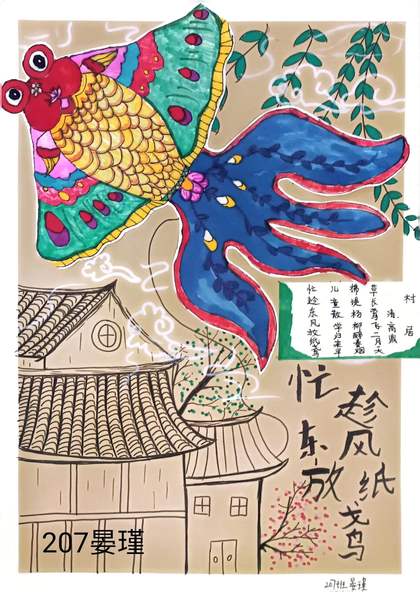 村居
清 高鼎
草长莺飞二月天
拂堤杨柳醉春烟
儿童散学归来早
忙趁东风放纸鸢
忙趁
东风
放纸
鸢
207晏瑾
207班 晏瑾